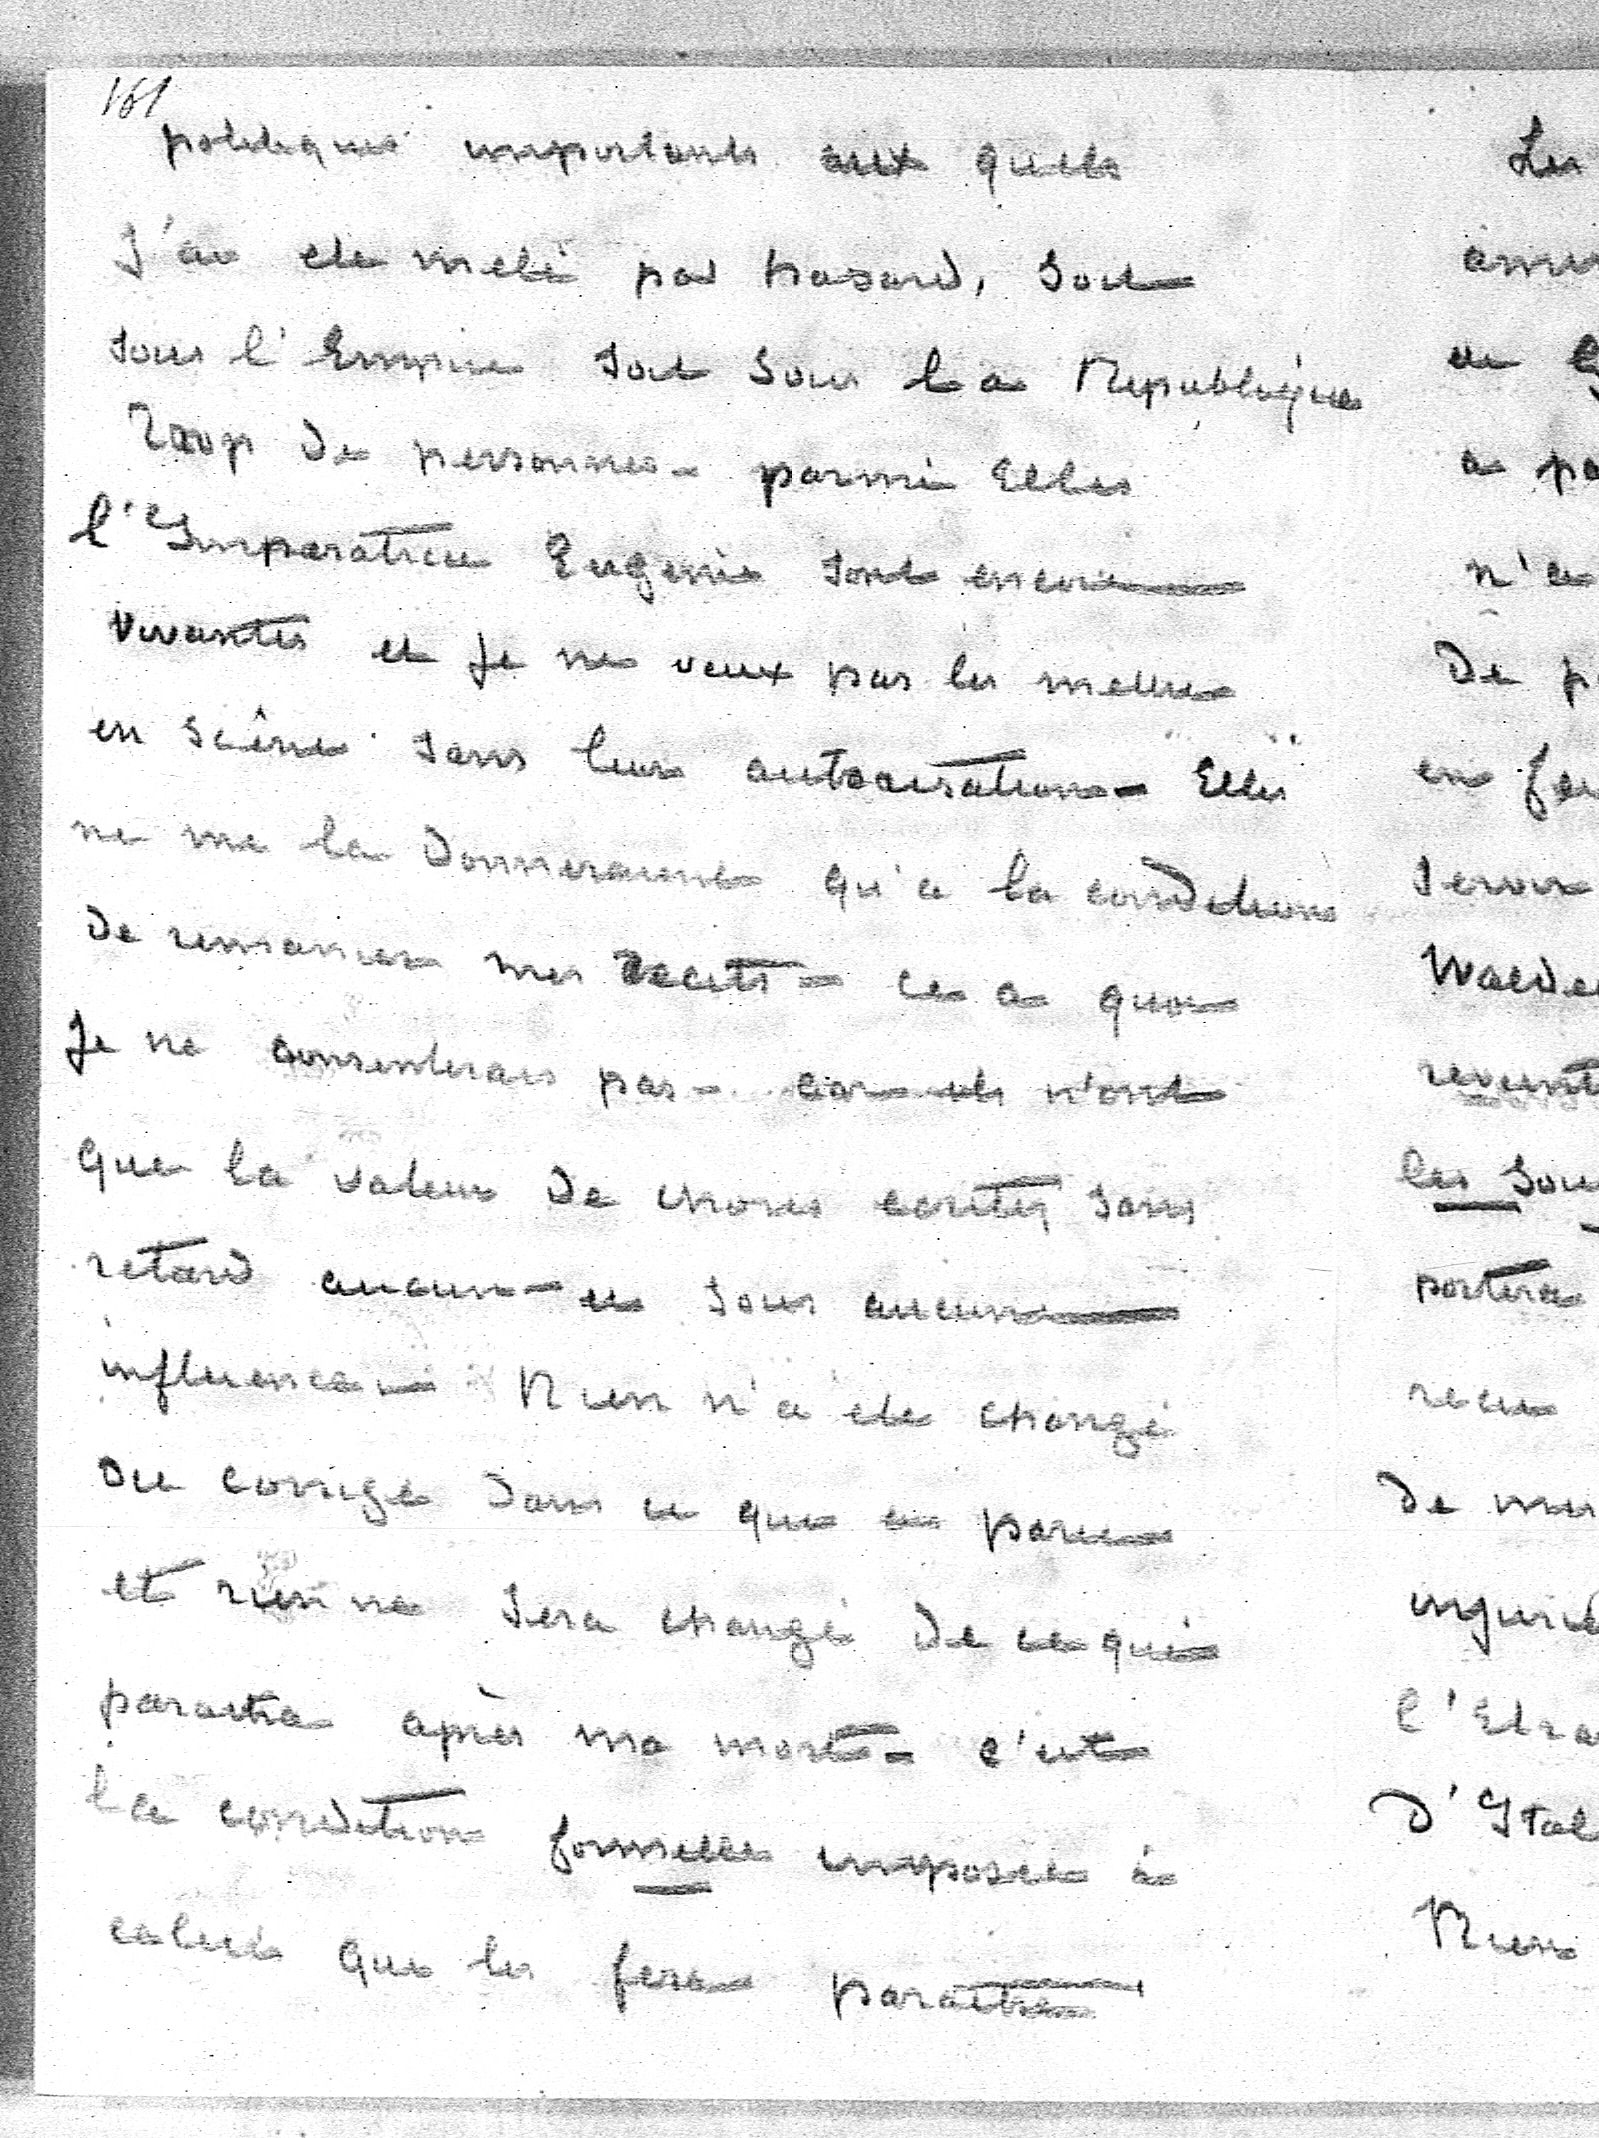 161
politiques importants aux quels
J'ai ete melé par hasard, soit
sous l'Empire soit sous la Republique
Trop de personnes - parmi Elles
l'Imperatrice Eugenie sont encore
vivantes et je ne veux pas les mettre
en scêne sans leur autorisation - Elles
ne me la donneraient qu'a la condition
de remanier mes recits - ce a quoi
Je ne consentirais pas - car ils n'ont
que la valeur de choses ecrites sans
retard aucun - et sous aucune
influence - Rien n'a ete changé
ou corrigé dans ce que a paru
et rien ne sera changé de ce qui
paraitra après ma mort - c'est
la condition formelle imposée à
celui que les fera paraitre
Les
amis
de G
a pa
n'a
De p
en fe
servir
Walde
revient
les Sou
portera
recu
de mes
injurie
l'Etra
d'Ital
Rien